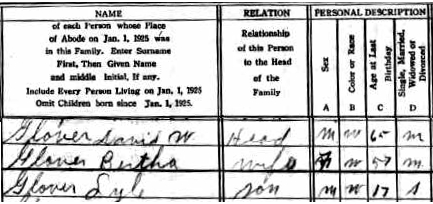 NAME RELATION PERSONAL DESCRIPTION
of each Person whose Place
of Abode on Jan. 1, 1925 was
in this Family. Enter Surname
First, Then Given Name
and middle Initial, if any.
Include Every Person Living on Jan. 1, 1925
Omit Children born since Jan. 1, 1925.
Relationship
of this Person
to the Head
of the
Family
Sex
Color or Race
Age at Last
Birthday
Single, Married,
Widowed or
Divorced
A B C D
Glover David W Head m w 65 m
Glover Bertha wife F w 57 m
Glover Lyle son m w 17 s